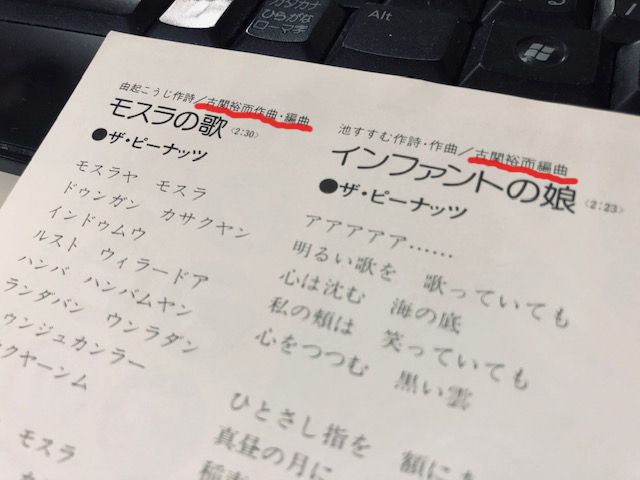 カタカナ
ひらがな
ローマ字
Alt
由起こうじ作詩/古関裕而作曲・編曲
モスラの歌〈2:30〉
●ザ・ピーナッツ
モスラヤ モスラ
ドゥンガン カサクヤン
インドゥムウ
ルスト ウィラードア
ハンバ ハンバムヤン
ランダバン ウンラダン
ゥンジュカンラー
クヤーンム
モスラ
池すすむ作詩・作曲/古関裕而編曲
インファントの娘〈2:23〉
●ザ・ピーナッツ
アアアアア……
明るい歌を 歌っていても
心は沈む 海の底
私の頬は 笑っていても
心をつつむ 黒い雲
ひとさし指を 額にあ
真昼の月に